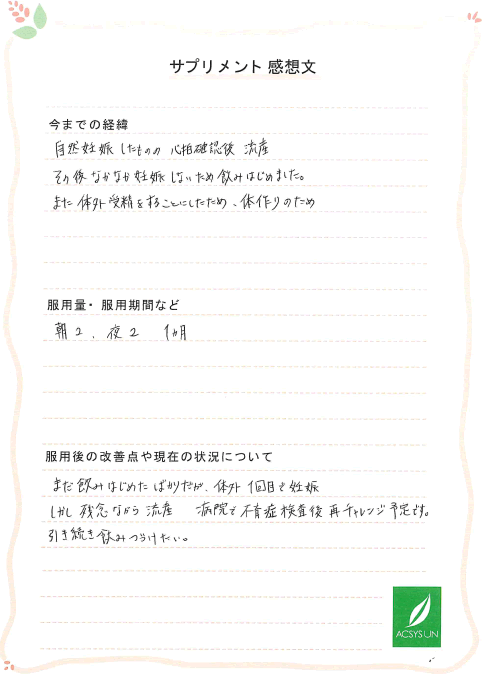 サプリメント 感想文
今までの経緯
自然妊娠したものの 心拍確認後 流産
その後なかなか妊娠しないため飲みはじめました。
また体外受精をすることにしたため、体作りのため
服用量・服用期間など
朝2、夜2 1ヵ月
服用後の改善点や現在の状況について
まだ飲みはじめたばかりだが、体外1回目で妊娠
しかし残念ながら流産 病院で不育症検査後再チャレンジ予定です。
引き続き飲みつづけたい。
ACSYSUN